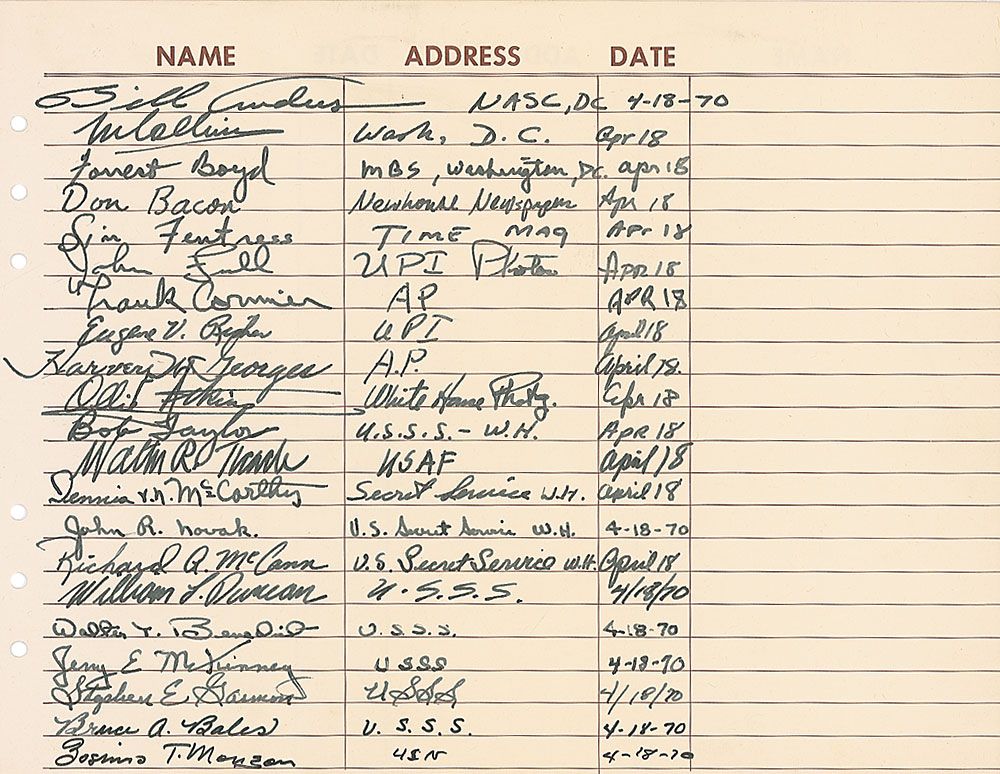 NAME ADDRESS DATE
Bill Anders NASC, DC 4-18-70
M Collins Wash, D.C. Apr 18
Forrest Boyd MBS, Washington, DC. apr 18
Don Bacon Newhouse Newspapers Apr 18
Jim Fentress TIME MAG APr 18
John Full UPI Photos APR 18
Frank Cormier AP APR 18
Eugene V. UPI april 18
Harvey W Georges A.P. April 18.
Ollie Atkins White House Photog. Apr 18
Bob Taylor U.S.S.S. - W.H. APR 18
Walter R. USAF April 18
Dennis v.n. McCarthy Secret Service W.H. april 18
John R. Novak. U.S. Secret Service W.H. 4-18-70
Richard A. McCann U.S. Secret Service W.H. April 18
William L. Duncan U.S.S.S. 4/18/70
Walter T. Benedict U.S.S.S. 4-18-70
Jerry E McKinney USSS 4-18-70
Stephen E. Garmon USSS 4/18/70
Bruce A. Bales U.S.S.S. 4-18-70
Zosimo T. Monzon USN 4-18-70